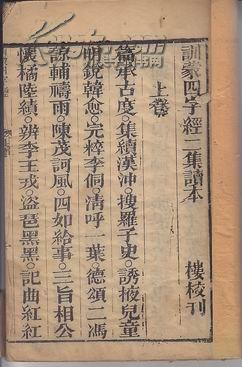 訓蒙四字經二集讀本 樓梭刊
上卷
篇承古度。集續漢沖。搜羅子史。誘掖兒童
銳韓愈。完粹李侗。清呼一葉。德頌二馮
諒輔禱雨。陳茂訶風。四如給事。三旨相公
懷橘陸績。辨李王戎。盜琶黑黑。記曲紅紅